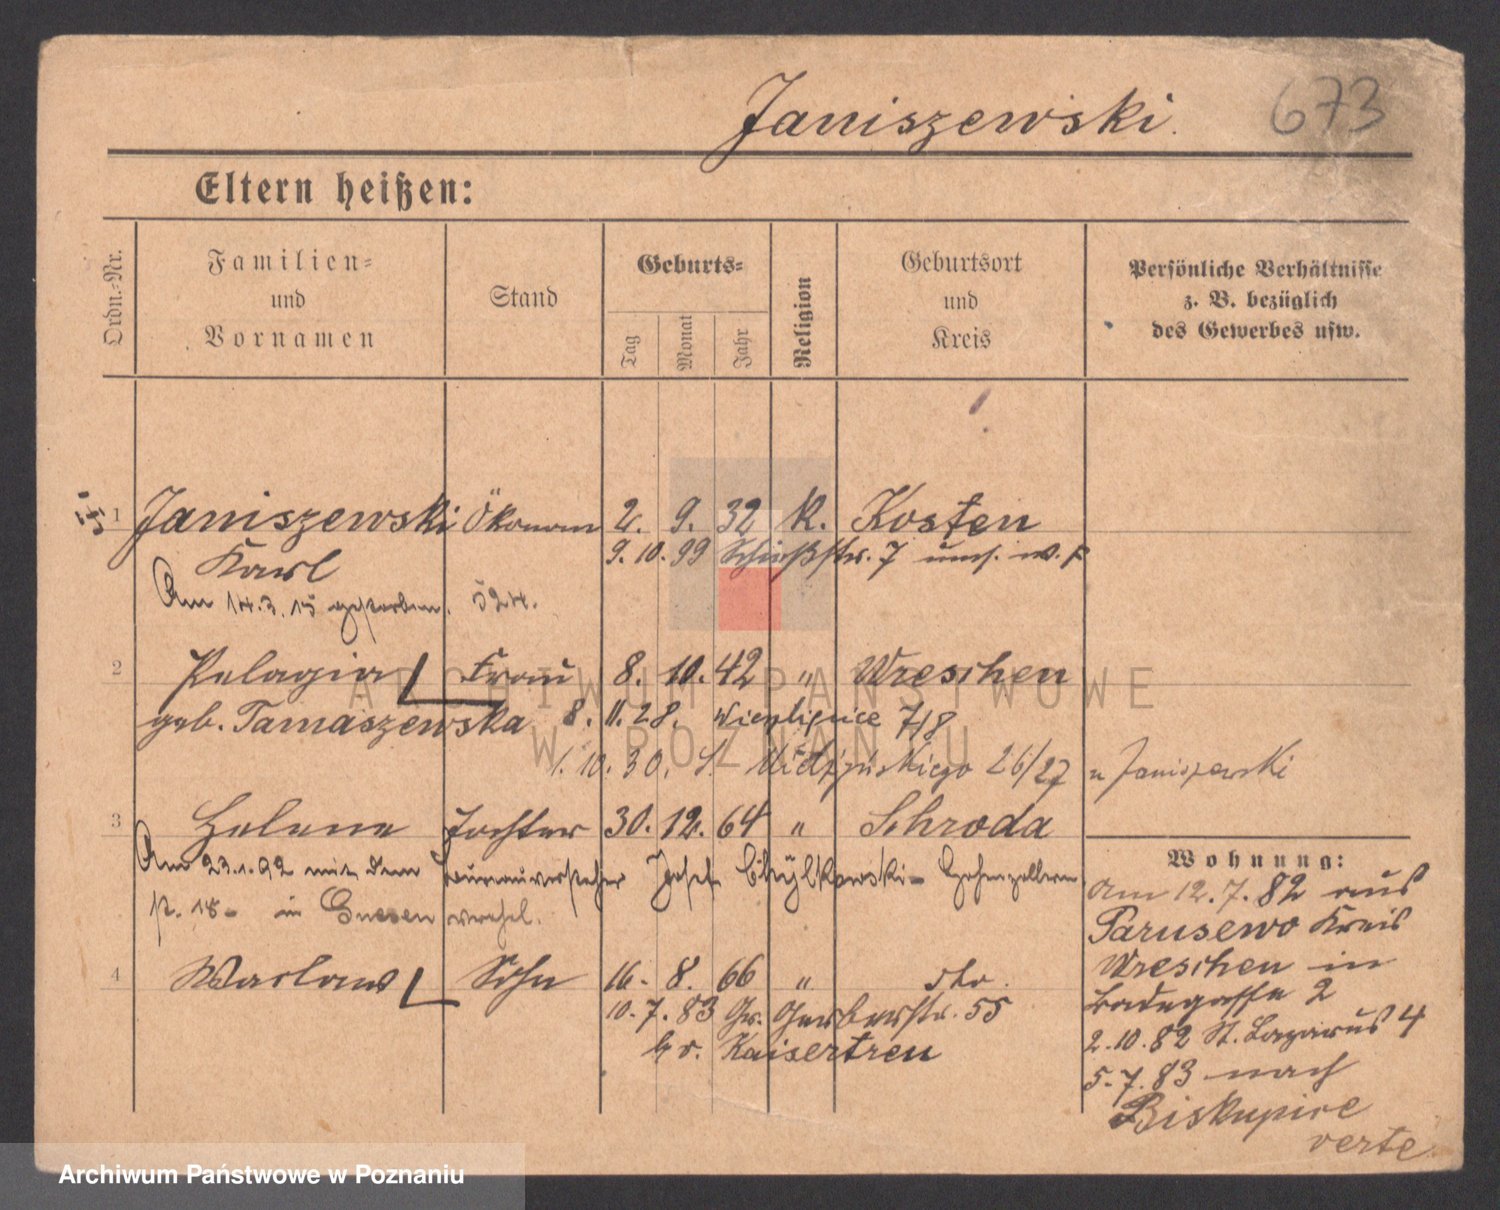 Janiszewski.
673
Eltern heißen:
Ordn.-Nr.
Familien-
und
Vornamen
Stand
Geburts-
Tag
Monat
Jahr
Religion
Geburtsort
und
Kreis
Persönliche Verhältnisse
z. B. bezüglich
des Gewerbes usw.
1 Janiszewski Ökonom 2. 9. 32 K. Kosten
Karl 9. 10. 99 Schießstr. 7
Am 14.3.15 gestorben. 524.
2 Pelagia Frau 8. 10. 42 " Wreschen
geb. Tamaszewska 8. 11. 28. 7/8
1. 10. 30. 26/27 u Janiszewski
3 Helene Tochter 30. 12. 64 " Schroda
Am 23.1.92 mit dem Josef
in Gnesen verehel.
4 Warlaw Sohn 16. 8. 66 " dto.
10. 7. 83 Gr. Gerberstr. 55
bv. Kaisertreu
Wohnung:
Am 12.7.82 aus
Parusewo Kreis
Wreschen in
Badegasse 2
2.10.82 St. Lazarus 4
5.7.83 nach
Biskupice
verte
ARCHIWUM PAŃSTWOWE
W POZNANIU
Archiwum Państwowe w Poznaniu